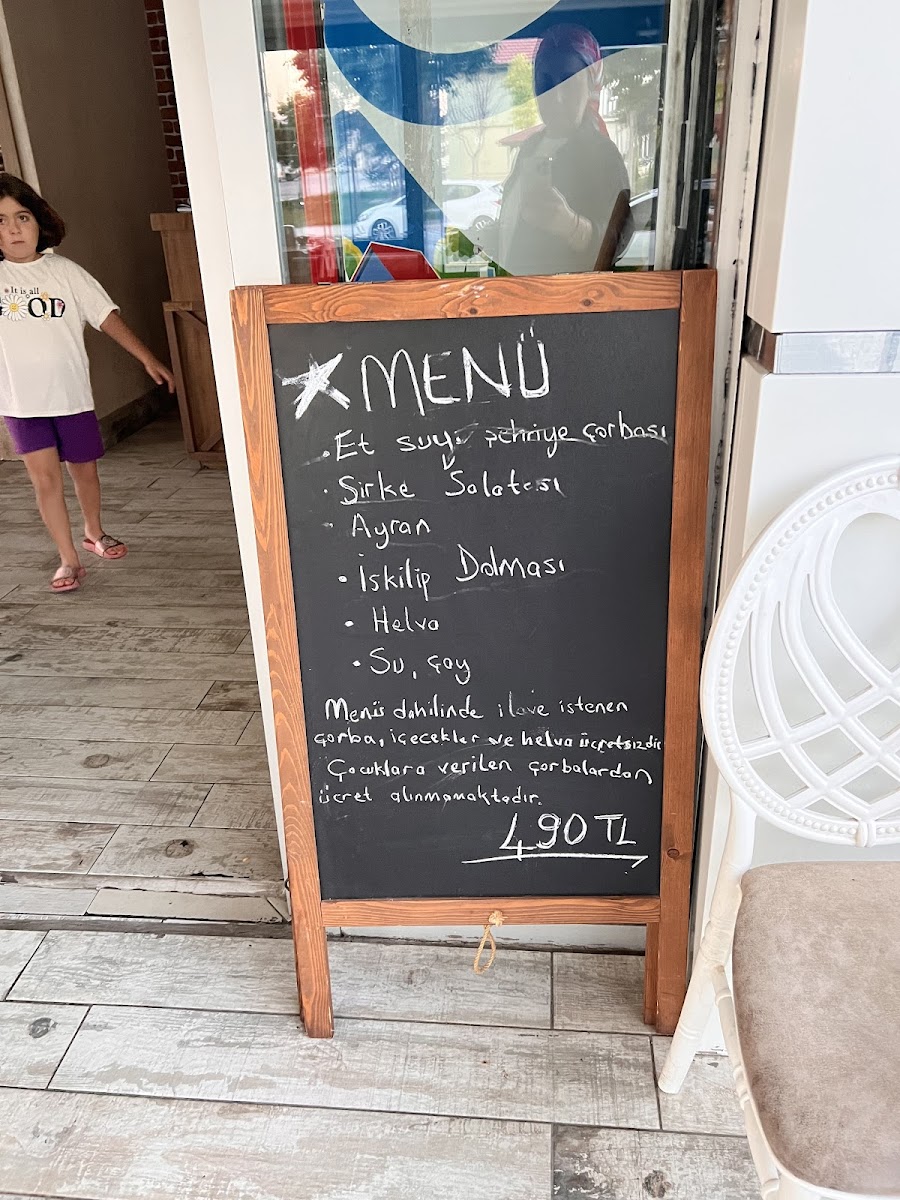 It is all
GOOD
MENÜ
• Et suyu şehriye çorbası
• Sirke Salatası
• Ayran
• İskilip Dolması
• Helva
• Su, çay
Menü dahilinde ilave istenen
çorba, içecekler ve helva ücretsizdir
Çocuklara verilen çorbalardan
ücret alınmamaktadır.
490 TL